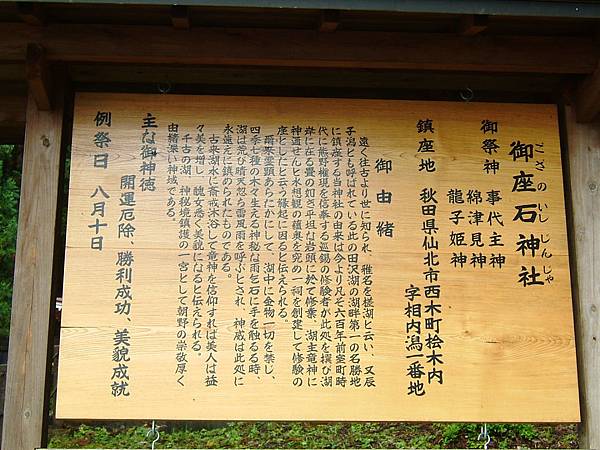 御座石神社
ござのいしじんじゃ
御祭神
事代主神
綿津見神
龍子姫神
鎮座地
秋田県仙北市西木町桧木内
字相内潟一番地
御由緒
遠く往古より世に知られ、雅名を槎湖と云い、又辰
子潟とも呼ばれている此の田沢湖の湖畔第一の名勝地
に鎮座する当神社の由来は今より凡そ六百年前室町時
代に熊野権現を信奉する巡錫の修験者が此処を撰び湖
岸に在る畳の如き平坦な岩頭に於て修業、湖主竜神に
神通せんと水想観の蘊奥を究め一祠を創建して修験の
座としたと云う縁起に因ると伝えられる。
爾来霊顕あらたかにして、湖中に金物一切を禁じ、
四季七種の木々生える神秘な雨乞石に手を触るる時、
湖は忽ち晴天怒り雷風雨を呼ぶとされ、神威は此処に
永遠に鎮められたものである。
古来湖水に斎戒沐浴して竜神を信仰すれば美人は益
々美を増し、醜女悉く美貌になると伝えられる。
千古の湖、神秘境鎮護の一宮として朝野の崇敬厚く
由緒深い神域である。
主な御神徳
開運厄除、勝利成功、美貌成就
例祭日 八月十日